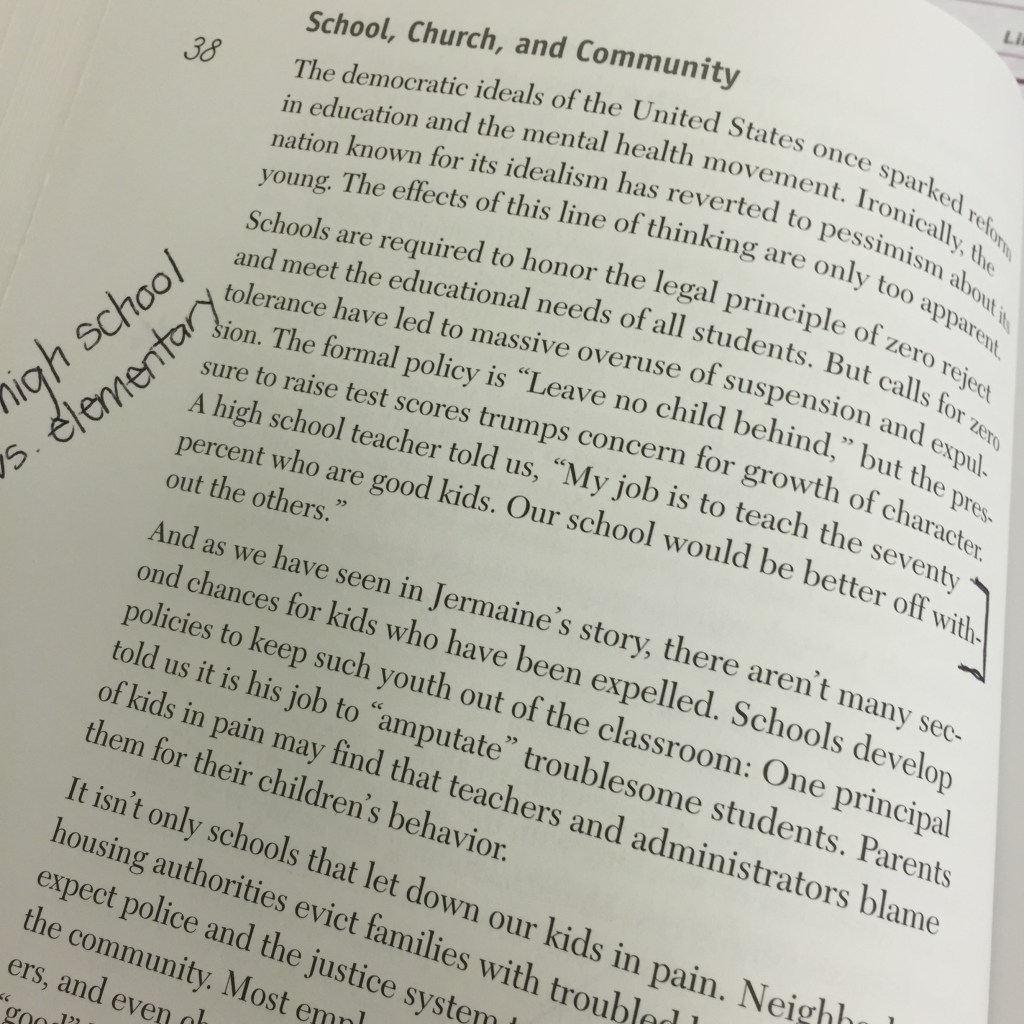 School, Church, and Community
38
The democratic ideals of the United States once sparked reform
in education and the mental health movement. Ironically, the
nation known for its idealism has reverted to pessimism about its
young. The effects of this line of thinking are only too apparent.
Schools are required to honor the legal principle of zero reject
and meet the educational needs of all students. But calls for zero
tolerance have led to massive overuse of suspension and expul-
sion. The formal policy is “Leave no child behind,” but the pres-
sure to raise test scores trumps concern for growth of character.
A high school teacher told us, “My job is to teach the seventy
percent who are good kids. Our school would be better off with-
out the others.”
high school
vs. elementary
And as we have seen in Jermaine’s story, there aren’t many sec-
ond chances for kids who have been expelled. Schools develop
policies to keep such youth out of the classroom: One principal
told us it is his job to “amputate” troublesome students. Parents
of kids in pain may find that teachers and administrators blame
them for their children’s behavior.
It isn’t only schools that let down our kids in pain. Neighbo
housing authorities evict families with troubled
expect police and the justice system
the community. Most empl
ers, and even
“good”